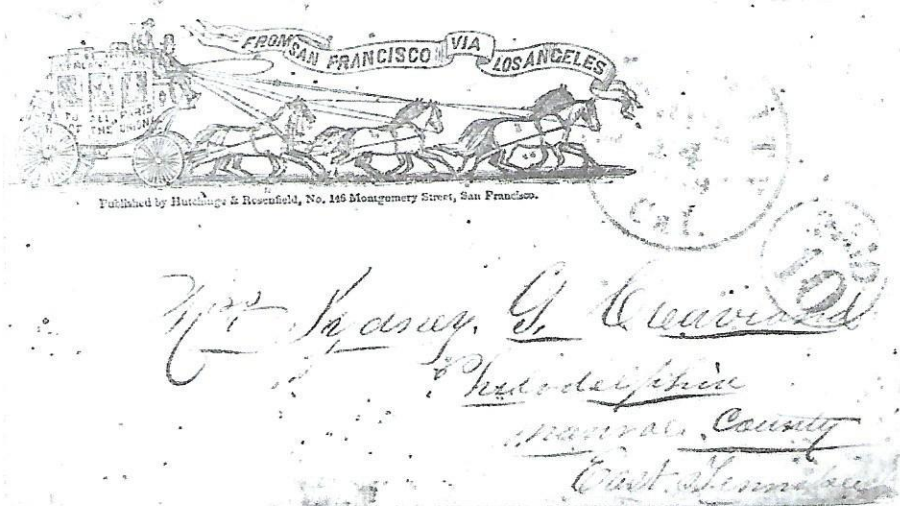 FROM SAN FRANCISCO VIA LOS ANGELES
TO ALL PARTS
OF THE UNION
Published by Hutchings & Rosenfield, No. 146 Montgomery Street, San Francisco.
Cal.
PAID
10
Mrs Sydney. G. Cleaveland
Philadelphia
Monroe County
East Tennessee